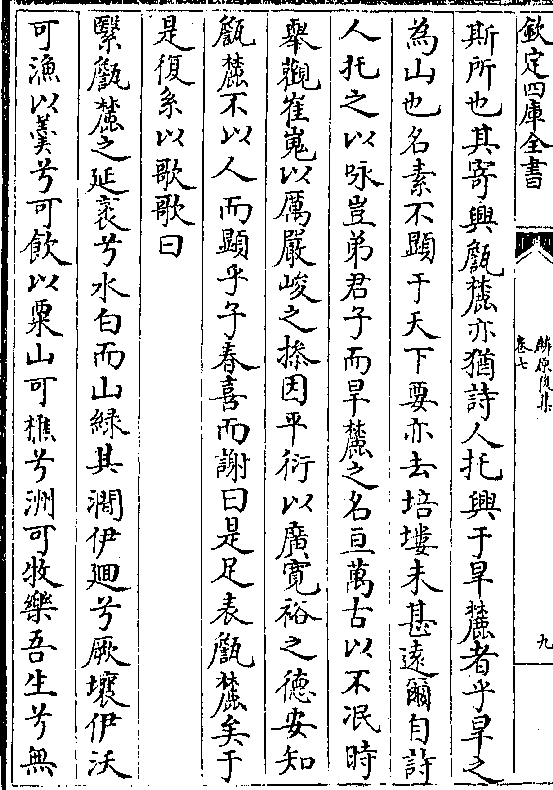 欽定四庫全書
麟原後集
卷七
九
斯所也其寄興甗麓亦猶詩人托興于旱麓者乎旱之
為山也名素不顯于天下要亦去培塿未甚遠爾自詩
人托之以咏豈弟君子而旱麓之名亘萬古以不泯時
舉觀崔嵬以厲嚴峻之操因平衍以廣寛裕之德安知
甗麓不以人而顯乎子春喜而謝曰是足表甗麓矣于
是復系以歌歌曰
繄甗麓之延袤兮水白而山緑其澗伊廻兮厥壤伊沃
可漁以羮兮可飲以粟山可樵兮洲可牧樂吾生兮無